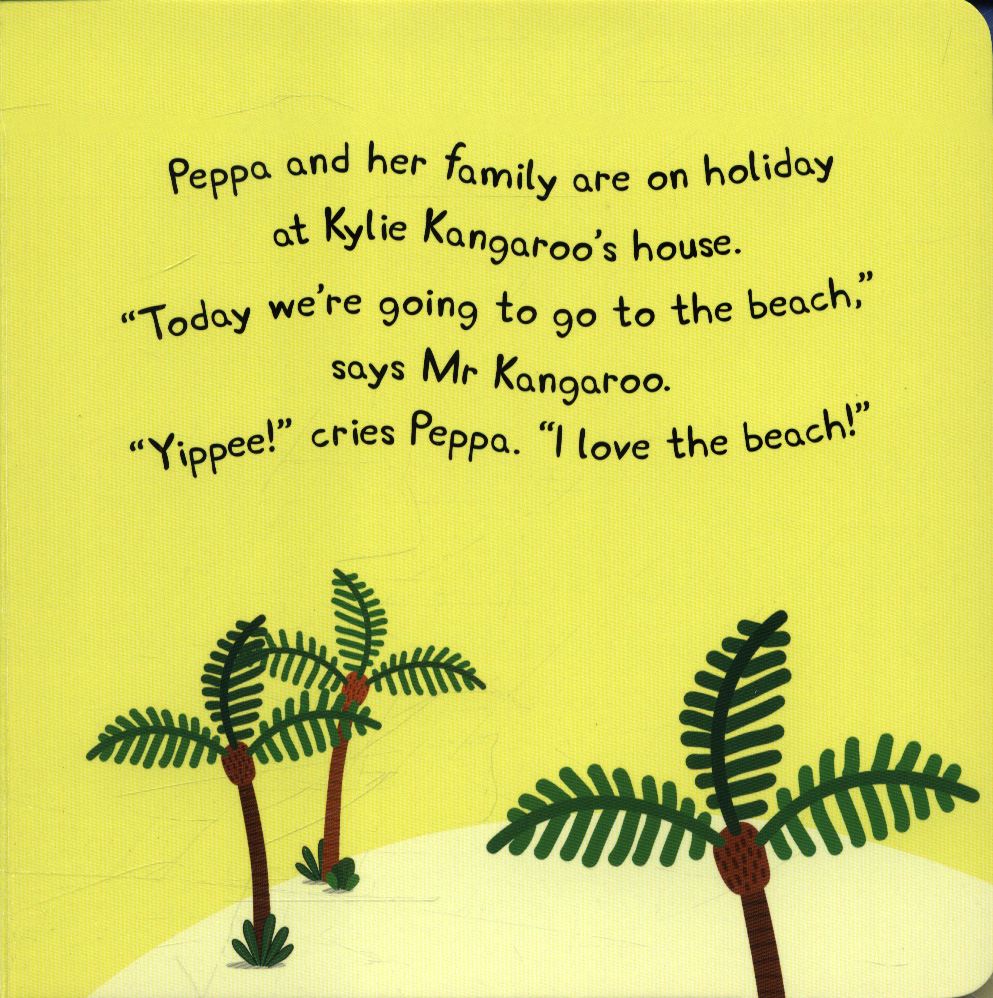 Peppa and her family are on holiday
at Kylie Kangaroo's house.
“Today we're going to go to the beach,”
says Mr Kangaroo.
“Yippee!” cries Peppa. “I love the beach!”